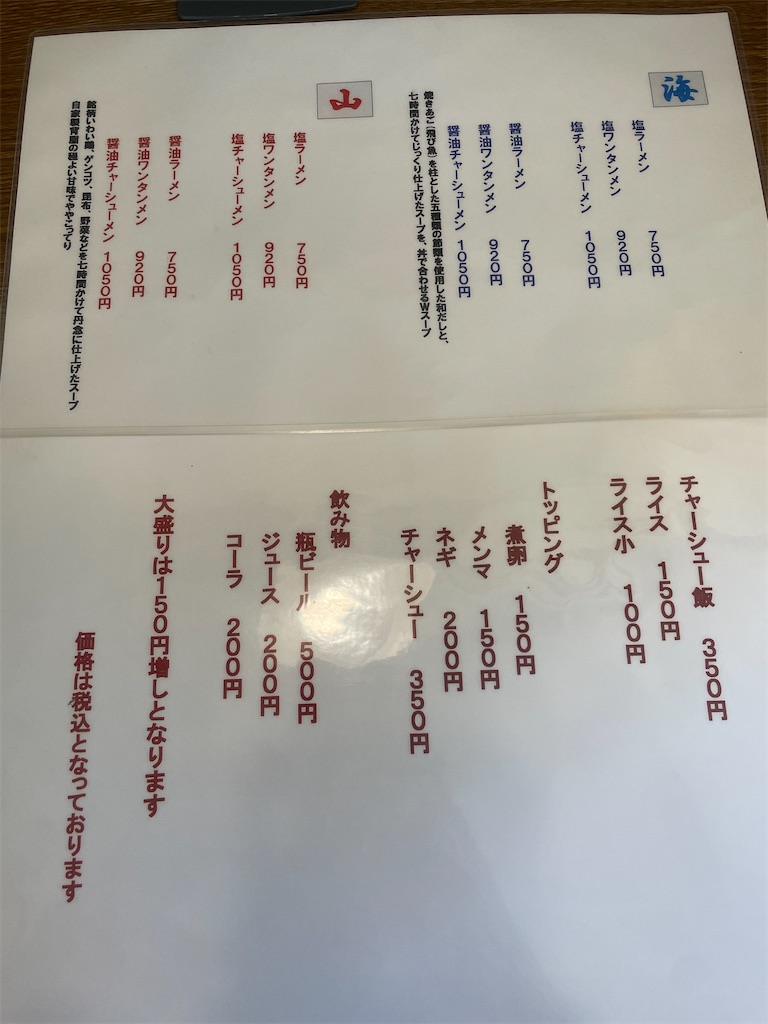 海
塩ラーメン 750円
塩ワンタンメン 920円
塩チャーシューメン 1050円
醤油ラーメン 750円
醤油ワンタンメン 920円
醤油チャーシューメン 1050円
焼きあご(飛び魚)を柱とした五種類の節類を使用した和だしと、
七時間かけてじっくり仕上げたスープを、丼で合わせるWスープ
山
塩ラーメン 750円
塩ワンタンメン 920円
塩チャーシューメン 1050円
醤油ラーメン 750円
醤油ワンタンメン 920円
醤油チャーシューメン 1050円
銘柄いわい鶏、ゲンコツ、昆布、野菜などを七時間かけて丹念に仕上げたスープ
自家製背脂の程よい甘味でややこってり
チャーシュー飯 350円
ライス 150円
ライス小 100円
トッピング
煮卵 150円
メンマ 150円
ネギ 200円
チャーシュー 350円
飲み物
瓶ビール 500円
ジュース 200円
コーラ 200円
大盛りは150円増しとなります
価格は税込となっております